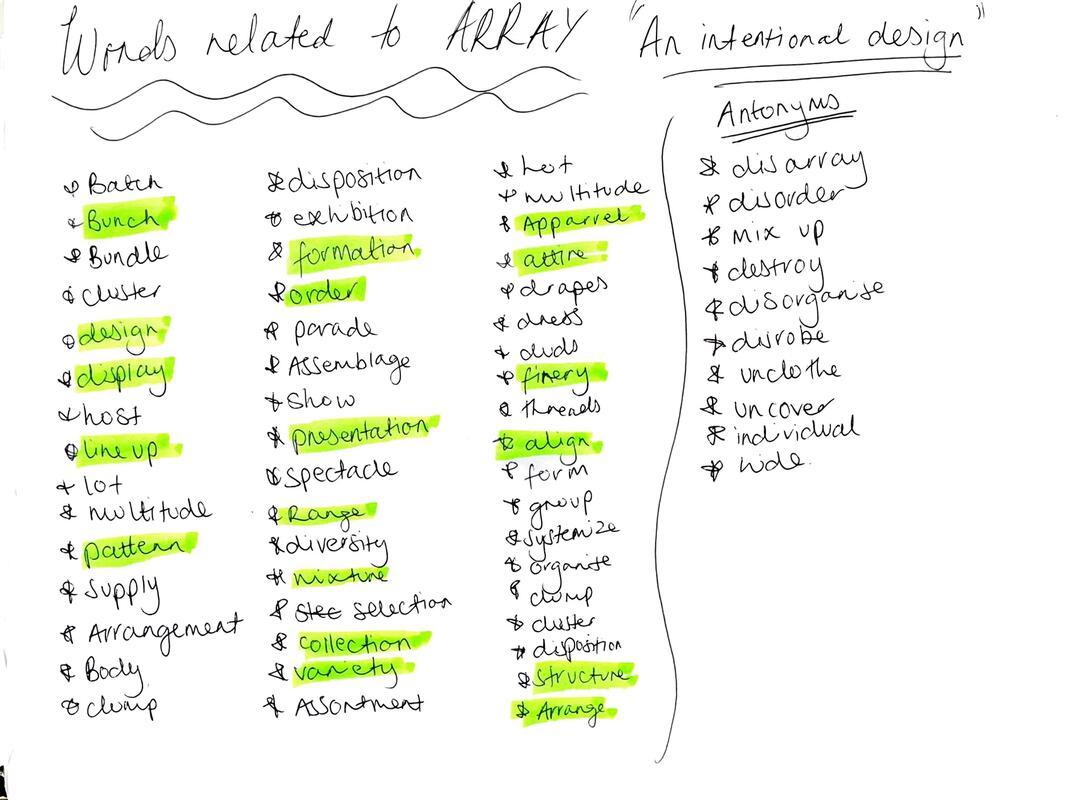 Words related to ARRAY
"An intentional design"
* Batch
* Bunch
* Bundle
* cluster
* design
* display
* host
* line up
* lot
* multitude
* pattern
* supply
* Arrangement
* Body
* clump
* disposition
* exhibition
* formation
* order
* parade
* Assemblage
* Show
* presentation
* spectacle
* Range
* diversity
* mixture
* selection
* collection
* variety
* Assortment
* lot
* multitude
* Apparrel
* attire
* drapes
* dress
* duds
* finery
* threads
* align
* form
* group
* systemize
* organise
* clump
* cluster
* disposition
* structure
* Arrange
Antonyms
* disarray
* disorder
* mix up
* destroy
* disorganise
* disrobe
* unclothe
* uncover
* individual
* hide